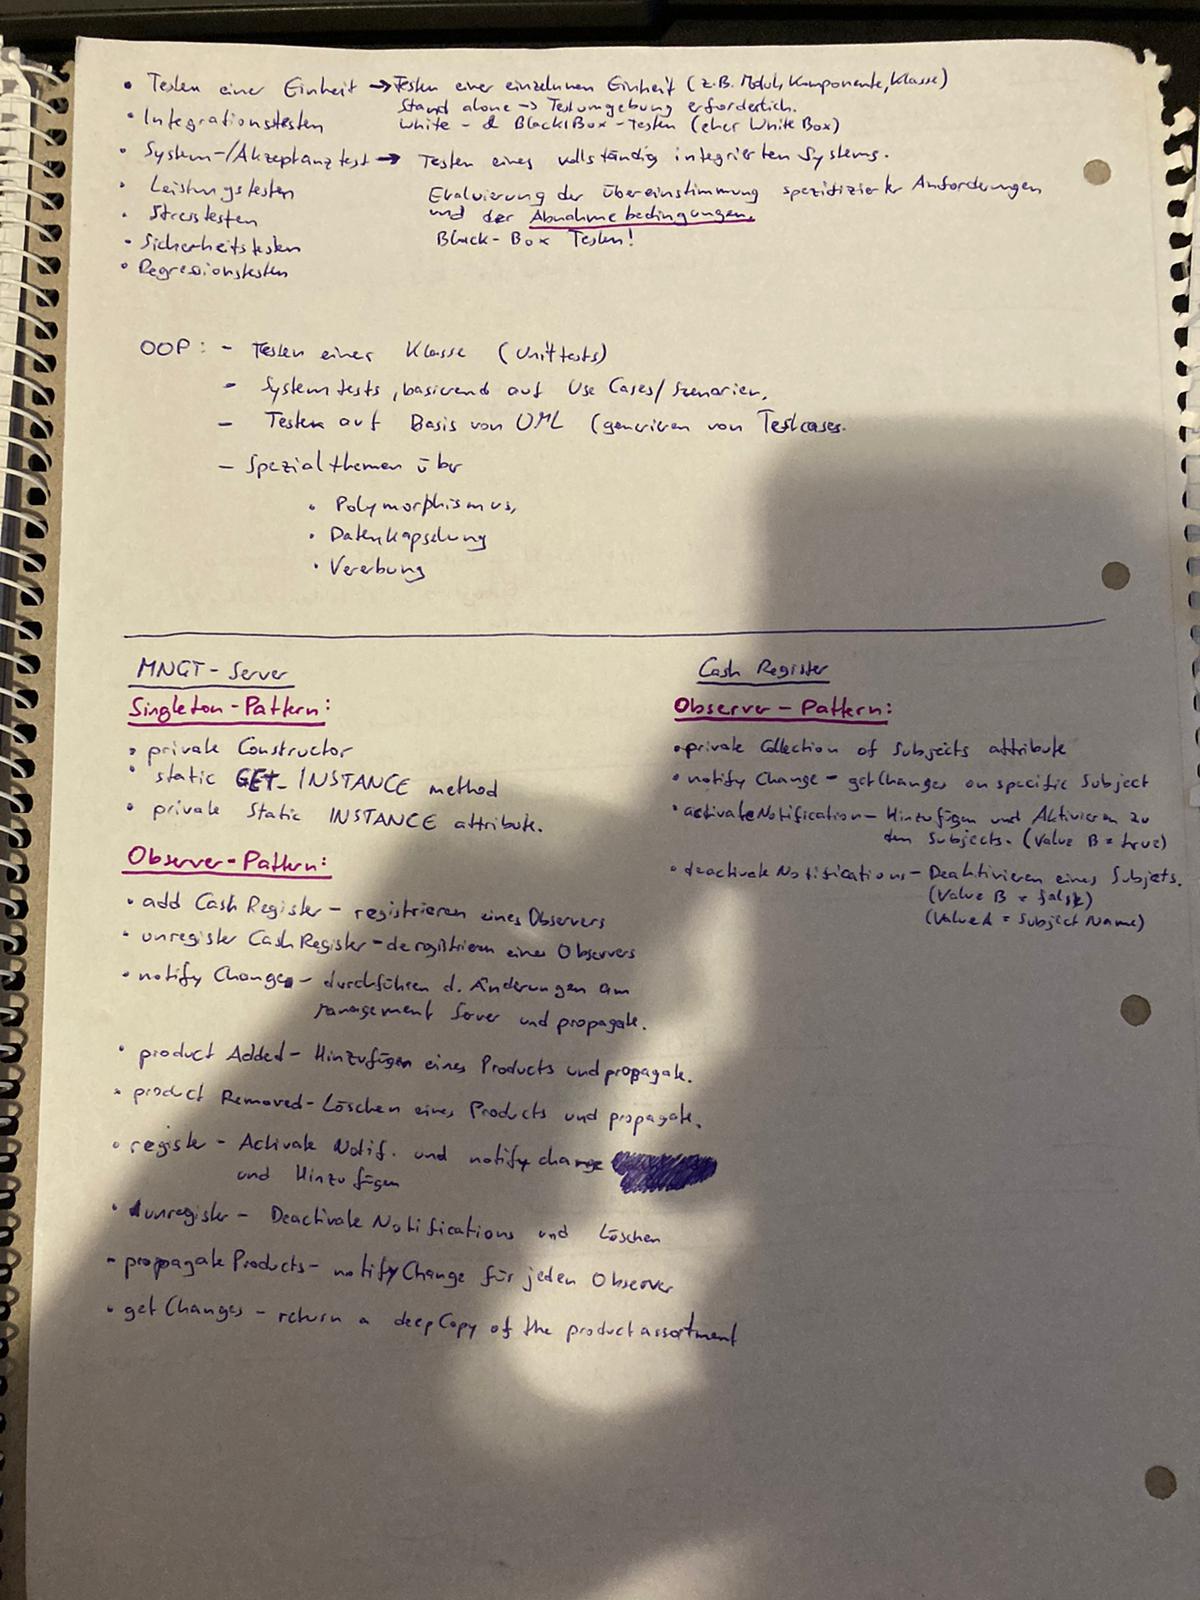 • Testen einer Einheit → Testen einer einzelnen Einheit (z.B. Modul, Komponente, Klasse)
Stand alone -> Testumgebung erforderlich.
• Integrationstesten
White- & Black Box-Testen (eher White Box)
• System-/Akzeptanztest → Testen eines vollständig integrierten Systems.
• Leistungstesten
Evaluierung der Übereinstimmung spezifizierter Anforderungen
• Stresstesten
und der Abnahmebedingungen.
• Sicherheitstesten
Black-Box Testen!
• Regressionstesten
OOP: - Testen einer Klasse (Unittests)
- Systemtests, basierend auf Use Cases/Szenarien.
- Testen auf Basis von UML (generieren von Testcases.
- Spezialthemen über
• Polymorphismus,
• Datenkapselung
• Vererbung
MNGT-Server
Singleton-Pattern:
• private Constructor
• static GET_INSTANCE method
• private static INSTANCE attribute.
Observer-Pattern:
• add Cash Register - registrieren eines Observers
• unregister Cash Register - deregistrieren eines Observers
• notify Changes - durchführen d. Änderungen am
Management Server und propagate.
• product Added - Hinzufügen eines Products und propagate.
• product Removed - Löschen eines Products und propagate.
• register - Activate Notif. und notify change
und Hinzufügen
• unregister - Deactivate Notifications und Löschen
- propagate Products - notifyChange für jeden Observer
• get Changes - return a deepCopy of the product assortment
Cash Register
Observer-Pattern:
• private Collection of Subjects attribute
• notify Change - getChanges on specific Subject
• activateNotification - Hinzufügen und Aktivieren zu
den Subjects. (Value B = true)
• deactivate Notifications - Deaktivieren eines Subjets.
(Value B = false)
(Value A = Subject Name)